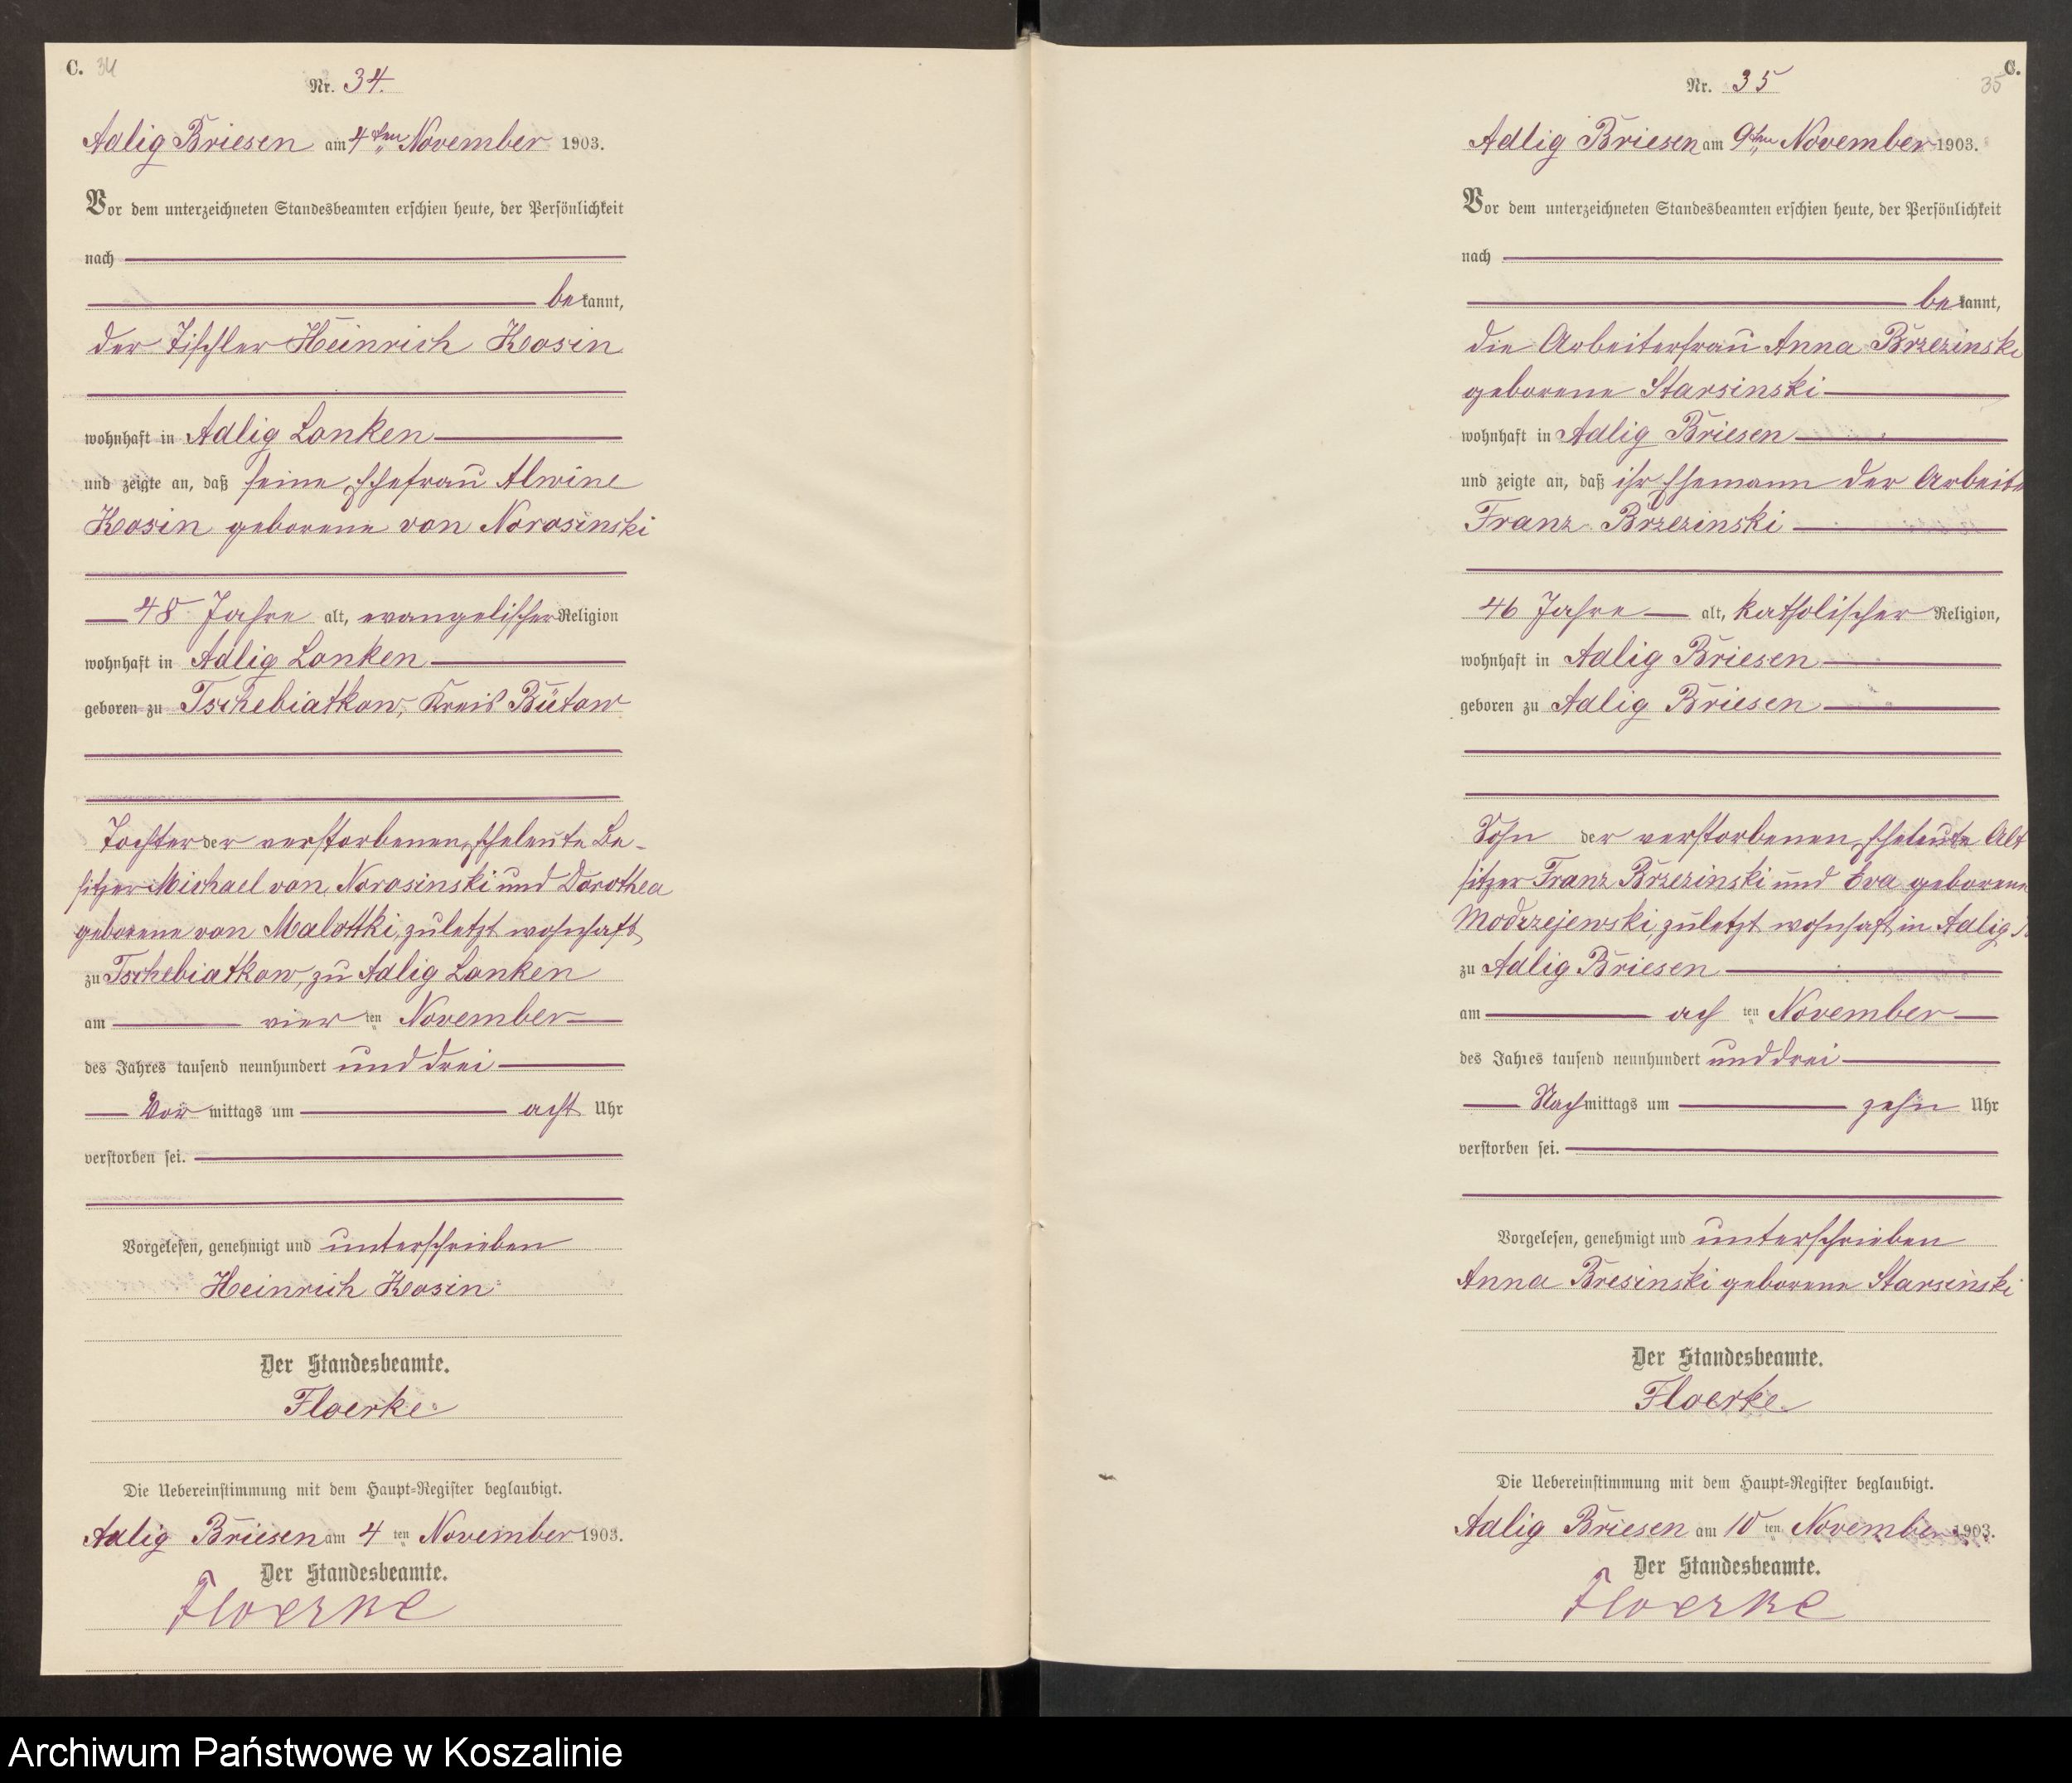 C. 34
Nr. 34.
Adlig Briesen am 4ten November 1903.
Vor dem unterzeichneten Standesbeamten erschien heute, der Persönlichkeit
nach
bekannt,
der Tischler Heinrich Kosin
wohnhaft in Adlig Lonken
und zeigte an, daß seine Ehefrau Alwine
Kosin geborene von Norosinski
48 Jahre alt, evangelischer Religion
wohnhaft in Adlig Lonken
geboren zu Tschebiatkow, Kreis Bütow
Tochter der verstorbenen Eheleute Be-
sitzer Michael von Norosinski und Dorothea
geborene von Malottki, zuletzt wohnhaft
zu Tschebiatkow, zu Adlig Lonken
am vier ten November
des Jahres tausend neunhundert und drei
Vor mittags um acht Uhr
verstorben sei.
Vorgelesen, genehmigt und unterschrieben
Heinrich Kosin
Der Standesbeamte.
Floerke
Die Uebereinstimmung mit dem Haupt-Register beglaubigt.
Adlig Briesen am 4 ten November 1903.
Der Standesbeamte.
Floerke
C.
35
Nr. 35
Adlig Briesen am 9ten November 1903.
Vor dem unterzeichneten Standesbeamten erschien heute, der Persönlichkeit
nach
bekannt,
die Arbeiterfrau Anna Brzezinski
geborene Starsinski
wohnhaft in Adlig Briesen
und zeigte an, daß ihr Ehemann der Arbeite
Franz Brzezinski
46 Jahre alt, katholischer Religion,
wohnhaft in Adlig Briesen
geboren zu Adlig Briesen
Sohn der verstorbenen Eheleute Alt
sitzer Franz Brzezinski und Eva geborene
Modrzejewski, zuletzt wohnhaft in Adlig
zu Adlig Briesen
am ach ten November
des Jahres tausend neunhundert und drei
Nach mittags um zehn Uhr
verstorben sei.
Vorgelesen, genehmigt und unterschrieben
Anna Bresinski geborene Starsinski
Der Standesbeamte.
Floerke
Die Uebereinstimmung mit dem Haupt-Register beglaubigt.
Adlig Briesen am 10 ten November 1903.
Der Standesbeamte.
Floerke
Archiwum Państwowe w Koszalinie